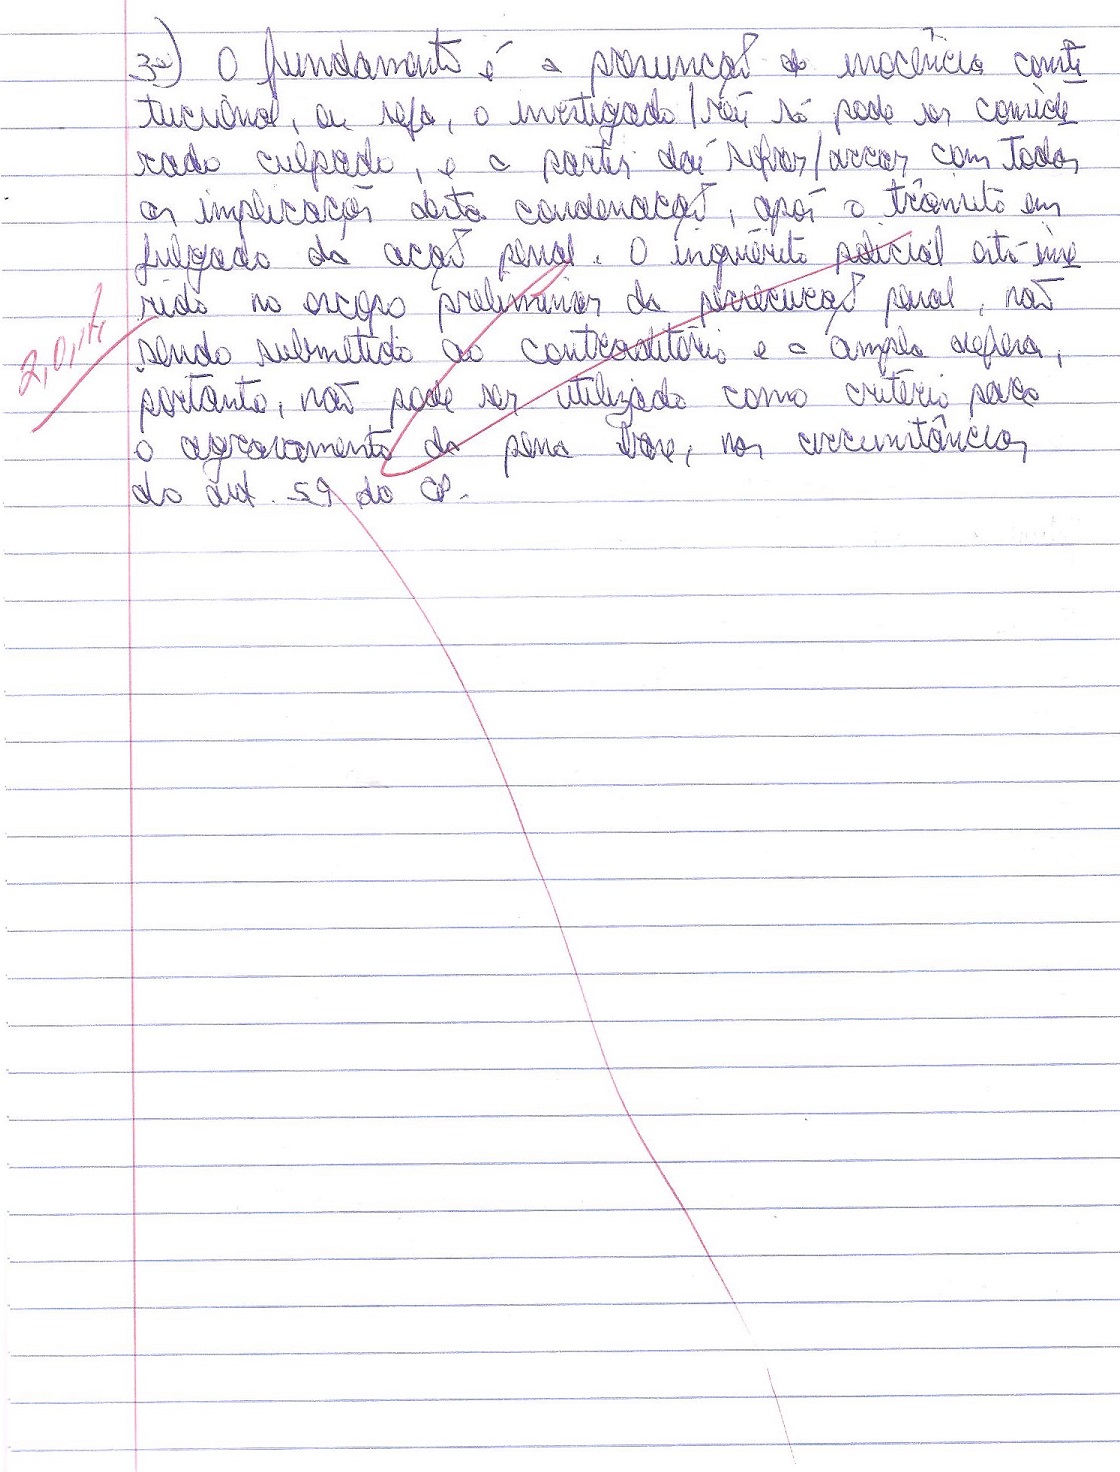 3ª) O fundamento é a presunção de inocência consti
tucional, ou seja, o investigado/réu só pode ser conside
rado culpado, e a partir daí sofrer/arcar com todas
as implicações desta condenação, após o trânsito em
julgado da ação penal. O inquérito policial está inse
rido no escopo preliminar da persecução penal, não
sendo submetido ao contraditório e a ampla defesa,
portanto, não pode ser utilizado como critério para
o agravamento da pena base, nas circunstâncias
do art. 59 do CP.
2,0